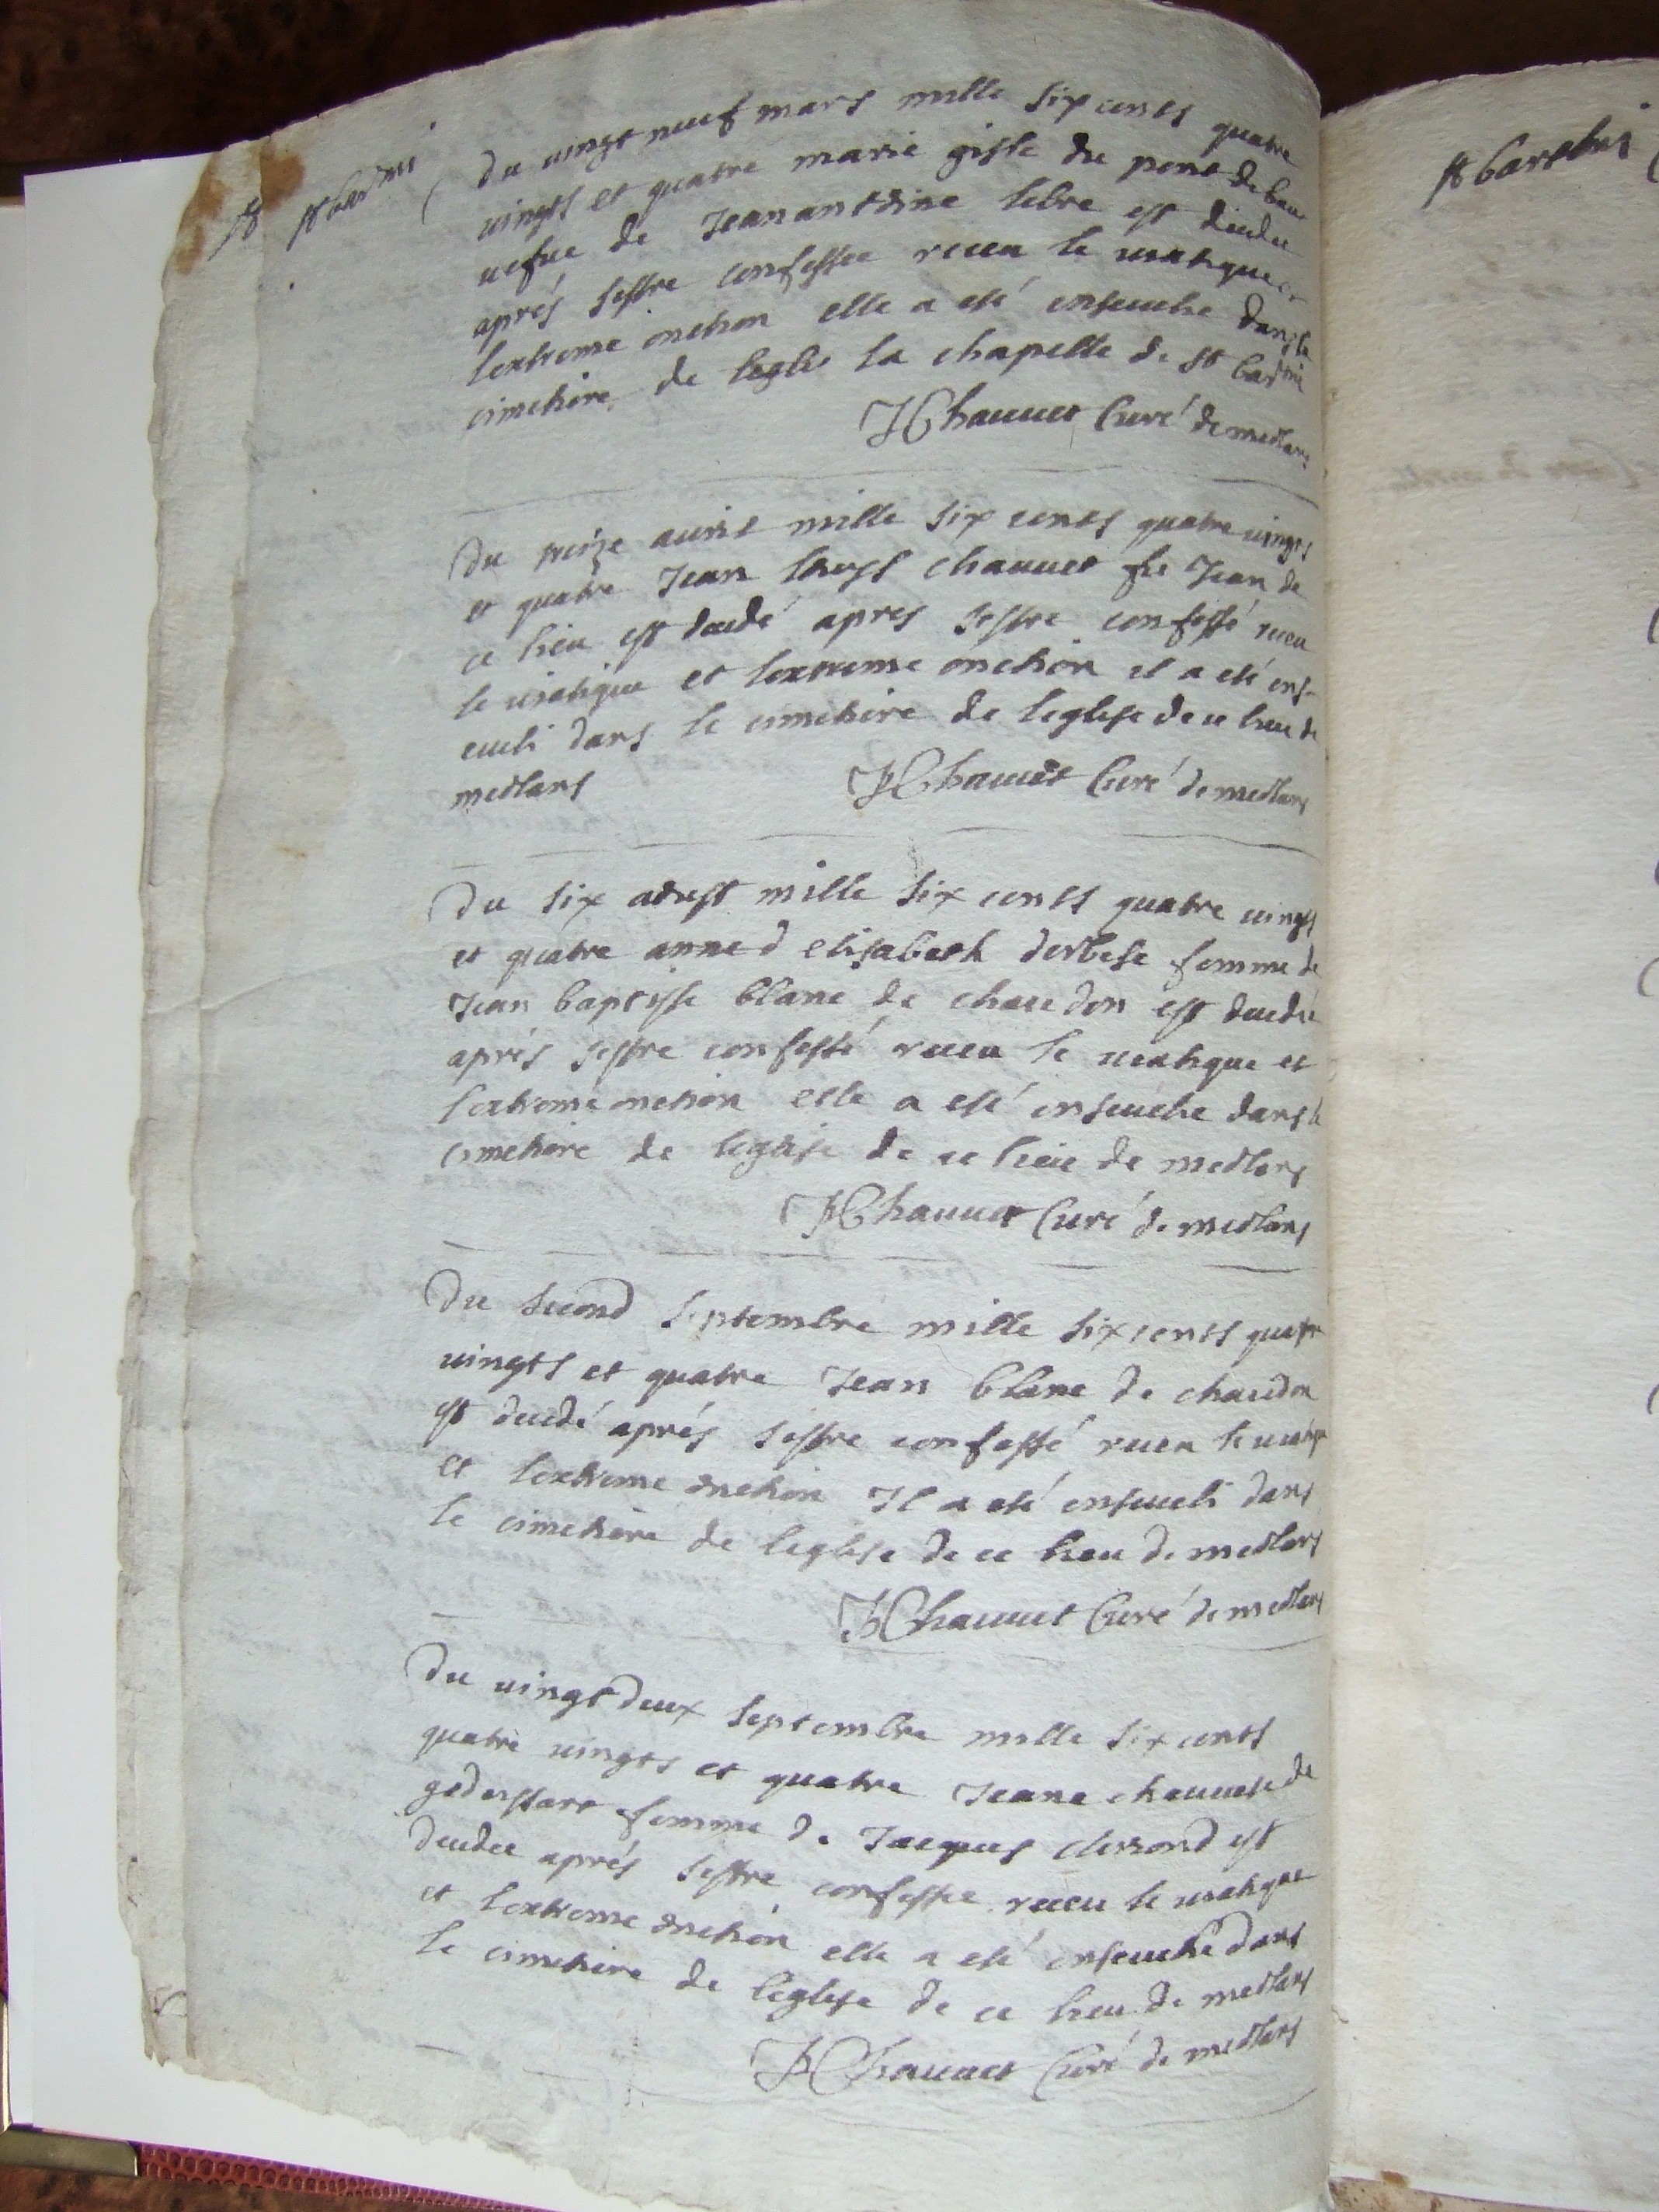 du vingt neuf mars mille six cents quatre
vingts et quatre marie gisle du pont de
vefve de Jean antoine lebre est decedee
aprés sestre confessée receu le viatique et
lextreme onction elle a esté ensevelie dans le
cimetiere de leglis la chapelle de st
JChauvet Curé de meolans
Du avril mille six cents quatre vingts
et quatre Jean Chauvet feu Jean de
ce lieu est decedé apres sestre confessé receu
le viatique et lextreme onction il a esté ens-
eveli dans le cimetiere de leglise de ce lieu de
meolans JChauvet Curé de meolans
Du six aoust mille six cents quatre vingts
et quatre anne d elisabeth derbese femme de
Jean baptiste blanc de chaudon est decedée
aprés sestre confessé receu le viatique et
lextreme onction elle a esté ensevelie dans le
cimetiere de leglise de ce lieu de meolans
JChauvet Curé de meolans
Du second septembre mille six cents quatre
vingts et quatre Jean blanc de chaudon
est decedé aprés sestre confessé receu le viatique
et lextreme onction Il a esté enseveli dans
le cimetiere de leglise de ce lieu de meolans
JChauvet Curé de meolans
Du vingt deux septembre mille six cents
quatre vingts et quatre Jeane chauvete de
femme de Jacques est
decedee aprés sestre confessée receu le viatique
et lextreme onction elle a esté ensevelie dans
le cimetiere de leglise de ce lieu de meolans
JChauvet Curé de meolans
st barthmi